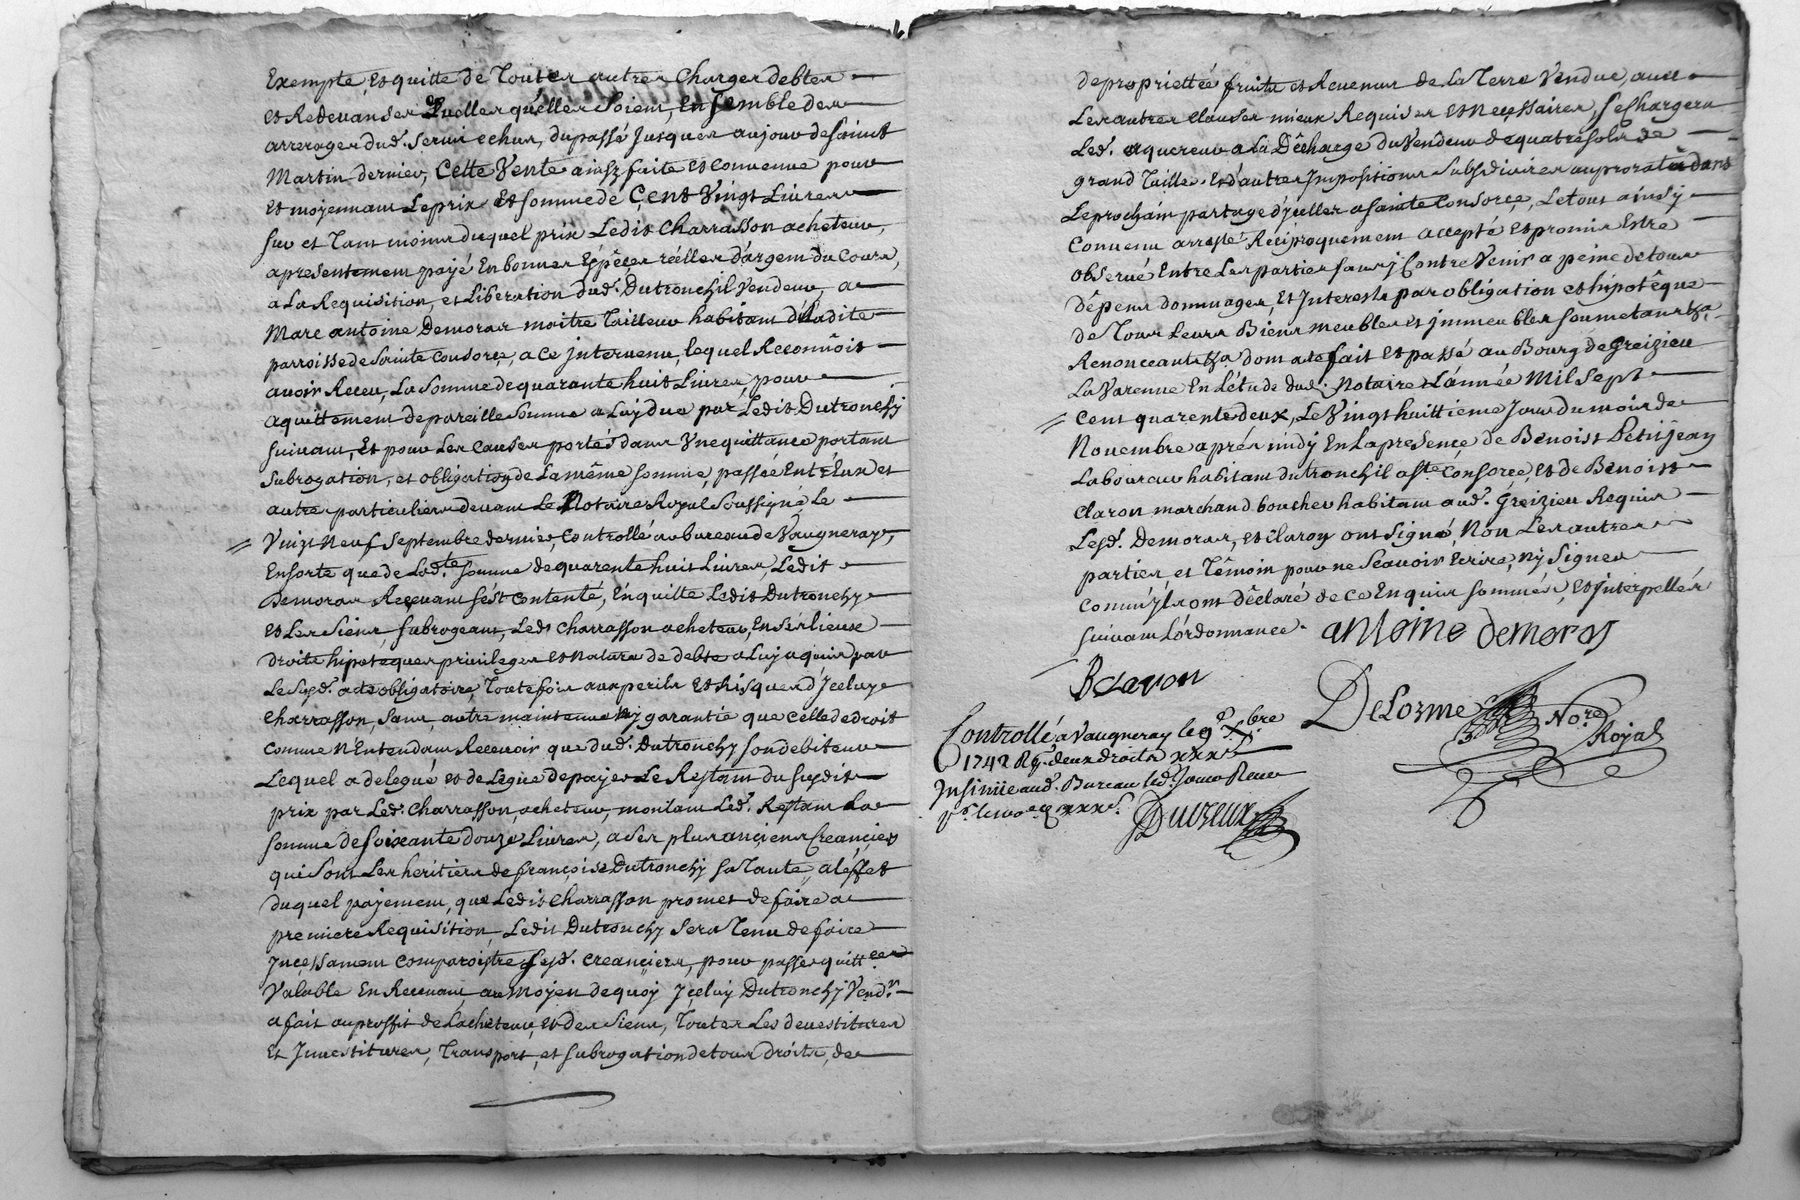 Exempte, et quitte de Toutes autres Charges debtes
et Redevanses Quelles qu'elles Soient, Ensemble des
arrerages dud. Servis echus, du passé Jusques au jour de saint
Martin dernier, Cette Vente ainsy faite et convenue pour
et moyennant Le prix et somme de Cent Vingt Livres
sur et Tant moins duquel prix Ledit Charrasson acheteur,
a presentement payé En bonnes Espêces réelles d'argent du Cours,
a La Requisition, et Liberation dud. Dutronchil Vendeur, a
Marc antoine Demoras maitre Tailleur habitant de Ladite
parroisse de Sainte Consorçe, a Ce jntervenu, lequel Reconnoit
avoir Receu, La Somme de quarante huit Livres, pour
aquittement de pareille Somme a Luy due par Ledit Dutronchy
suivant, Et pour Les Causes portés dans Vne quittance portant
Subrogation, et obligation de La même somme, passée Entr'Eux et
autres particuliers devant Le Notaire Royal Soussigné Le
Vingt Neuf Septembre dernier, Controllé au bureau de Vaugneray,
Ensorte que de Lad.te somme de quarente huit Livres, Ledit
Demoras Reçevant s'ést Contenté, En quitte Ledit Dutronchy
et Les Siens, subrogeant, Led.t Charrasson acheteur, En ses lieux
droits hipoteques privileges et Nature de debte a Luy aquis par
Le susd. acte obligatoire, Toutefois aux perils et Risques d'Jceluy
Charrasson, Sans autre maintenue Ny garantie que celle de droit
Comme N'Entendant Recevoir que dud. Dutronchy son debiteur
Lequel a delegué et delégue de payer Le Restant du susdit
prix par Led. Charrasson, acheteur, montant Led. Restant La
Somme de soixante douze Livres, a Ses plus anciens Creançiers
qui Sont Les heritiers de françoise Dutronchy sa Tante, a l'éffet
duquel payement, que Ledit Charrasson promet de faire a
premiere Requisition, Ledit Dutronchy Sera Tenu de faire
Jncessament comparoistre Lesd. Creanciers, pour passer quitt.ces
Valable En Recevant, au Moyen de quoy Jceluy Dutronchy Vend.r
a fait au proffit de L'acheteur, et des Siens, Toutes Les devestitures
Et Jnvestitures, Transport, et Subrogation de tous droits, de
de propriettée fruits et Revenus de La Terre Vendue avec
Les autres Clauses mieux Requises et Necessaires, se Chargera
Led. aquereur a La Décharge du Vendeur de quatre sols de
grand Taille. Et d'autres Jmpositions Subsidiaires au prorata dans
Le prochain partage d'ycelles a Sainte Consorce, Le tout ainsy
Convenu arresté Reciproquement accepté et promis Estre
observé Entre Les parties sans y Contre Venir a peine de tous
dépens dommages, Et Jnterests par obligation et hipotêque
de Tous Leurs Biens meubles et jmmeubles soumetants &a.
Renonceants &a dont acte fait et passé au Bourg de Greizieu
La Varenne En L'étude dud. Notaire L'année Mil Sept
Cent quarente deux, Le Vingt huittieme Jour du mois de
Novembre aprés midy En La presençe de Benoist Petitjean
Laboureur habitant du tronchil a S.te Consorce, et de Benoist
Claron marchand boucher habitant aud. Greizieu Requis
Lesd. Demoras, et Claron ont Signé, Non Les autres
parties et Témoin pour ne Scavoir Ecrire, ny Signer
Comm'yls ont déclaré de ce Enquis sommés, Et Jnterpellés
suivant L'ordonnance.
antoine demoras
B claron
DeLorme No.re Royal
Controllé a Vaugneray le 9.e X.bre
1742 Rç. deux droits xxx s
Insinüé aud. Bureau led. Jour
Duvreux